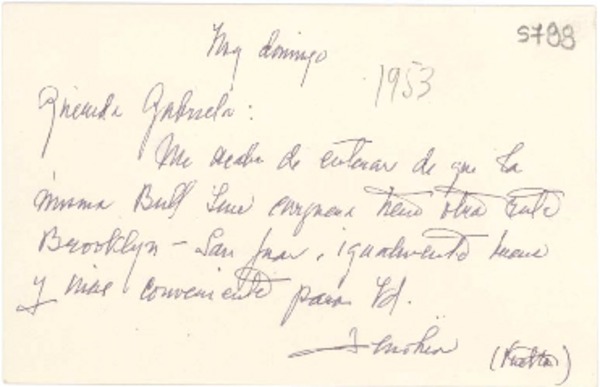 Hoy domingo
5788
1953
Querida Gabriela:
Me acabo de enterar de que la
misma Bull Line company tiene otra ruta
Brooklyn - San Juan, igualmente buena
y más conveniente para Ud.
(Vuelta)